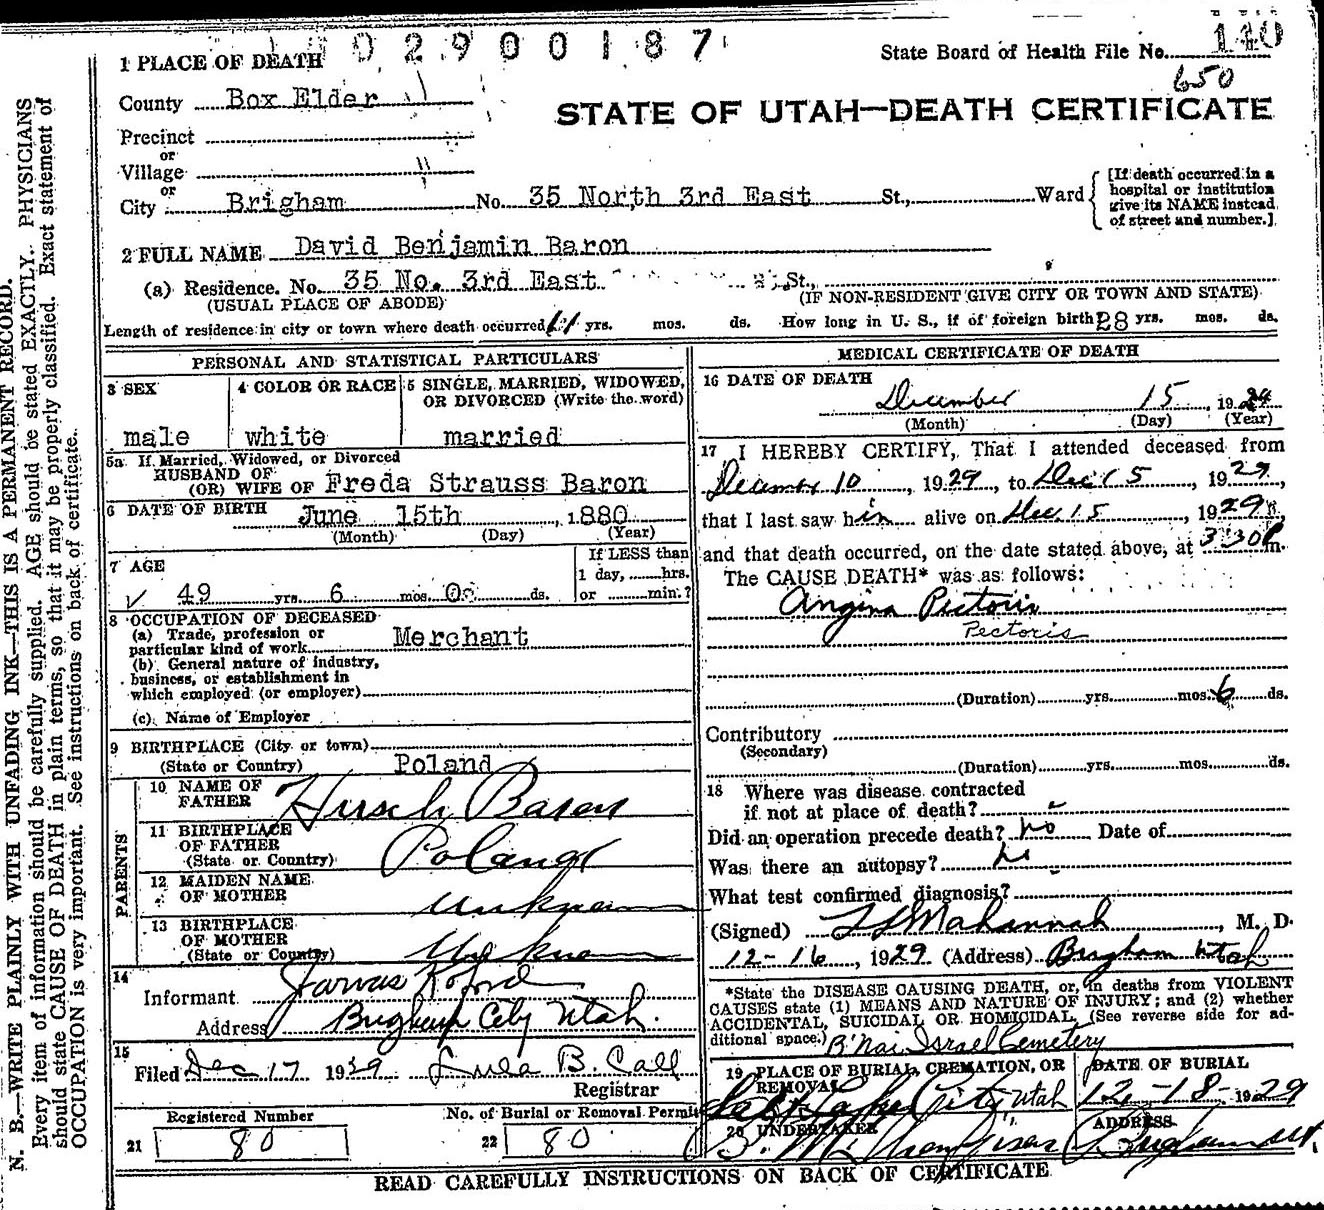 02900187
State Board of Health File No. 140
650
STATE OF UTAH—DEATH CERTIFICATE
1 PLACE OF DEATH
County Box Elder
Precinct
or
Village
or
City Brigham No. 35 North 3rd East St., Ward
[If death occurred in a
hospital or institution
give its NAME instead
of street and number.]
2 FULL NAME David Benjamin Baron
(a) Residence. No. 35 No. 3rd East St.,
(USUAL PLACE OF ABODE) (IF NON-RESIDENT GIVE CITY OR TOWN AND STATE)
Length of residence in city or town where death occurred 11 yrs. mos. ds. How long in U. S., if of foreign birth 28 yrs. mos. ds.
PERSONAL AND STATISTICAL PARTICULARS
3 SEX
male
4 COLOR OR RACE
white
5 SINGLE, MARRIED, WIDOWED,
OR DIVORCED (Write the word)
married
5a If Married, Widowed, or Divorced
HUSBAND OF
(OR) WIFE OF Freda Strauss Baron
6 DATE OF BIRTH June 15th, 1880
(Month) (Day) (Year)
7 AGE
49 yrs. 6 mos. 0 ds.
If LESS than
1 day, hrs.
or min.?
8 OCCUPATION OF DECEASED
(a) Trade, profession or
particular kind of work Merchant
(b) General nature of industry,
business, or establishment in
which employed (or employer)
(c) Name of Employer
9 BIRTHPLACE (City or town)
(State or Country) Poland
PARENTS
10 NAME OF
FATHER Hirsch Baron
11 BIRTHPLACE
OF FATHER
(State or Country) Poland
12 MAIDEN NAME
OF MOTHER unknown
13 BIRTHPLACE
OF MOTHER
(State or Country) Unknown
14
Informant Jarvas Koford
Address Brigham City Utah.
15
Filed Dec 17 1929 Lula B. Call
Registrar
Registered Number
21 80
No. of Burial or Removal Permit
22 80
MEDICAL CERTIFICATE OF DEATH
16 DATE OF DEATH
December 15, 1929
(Month) (Day) (Year)
17 I HEREBY CERTIFY, That I attended deceased from
December 10, 1929, to Dec 15, 1929,
that I last saw him alive on Dec. 15, 1929,
and that death occurred, on the date stated above, at 3:30 P m.
The CAUSE DEATH* was as follows:
Angina Pectoris
Pectoris
(Duration) yrs. mos. 6 ds.
Contributory
(Secondary)
(Duration) yrs. mos. ds.
18 Where was disease contracted
if not at place of death?
Did an operation precede death? no Date of
Was there an autopsy? no
What test confirmed diagnosis?
(Signed) Mahannah, M. D.
12-16, 1929 (Address) Brigham Utah
*State the DISEASE CAUSING DEATH, or, in deaths from VIOLENT
CAUSES state (1) MEANS AND NATURE OF INJURY; and (2) whether
ACCIDENTAL, SUICIDAL OR HOMICIDAL. (See reverse side for ad-
ditional space.)
B'Nai Israel Cemetery
19 PLACE OF BURIAL, CREMATION, OR
REMOVAL
Salt Lake City, Utah
DATE OF BURIAL
12-18-1929
20 UNDERTAKER
ADDRESS
Brigham Ut.
READ CAREFULLY INSTRUCTIONS ON BACK OF CERTIFICATE
N. B.—WRITE PLAINLY WITH UNFADING INK—THIS IS A PERMANENT RECORD.
Every item of information should be carefully supplied. AGE should be stated EXACTLY. PHYSICIANS
should state CAUSE OF DEATH in plain terms, so that it may be properly classified. Exact statement of
OCCUPATION is very important. See instructions on back of certificate.